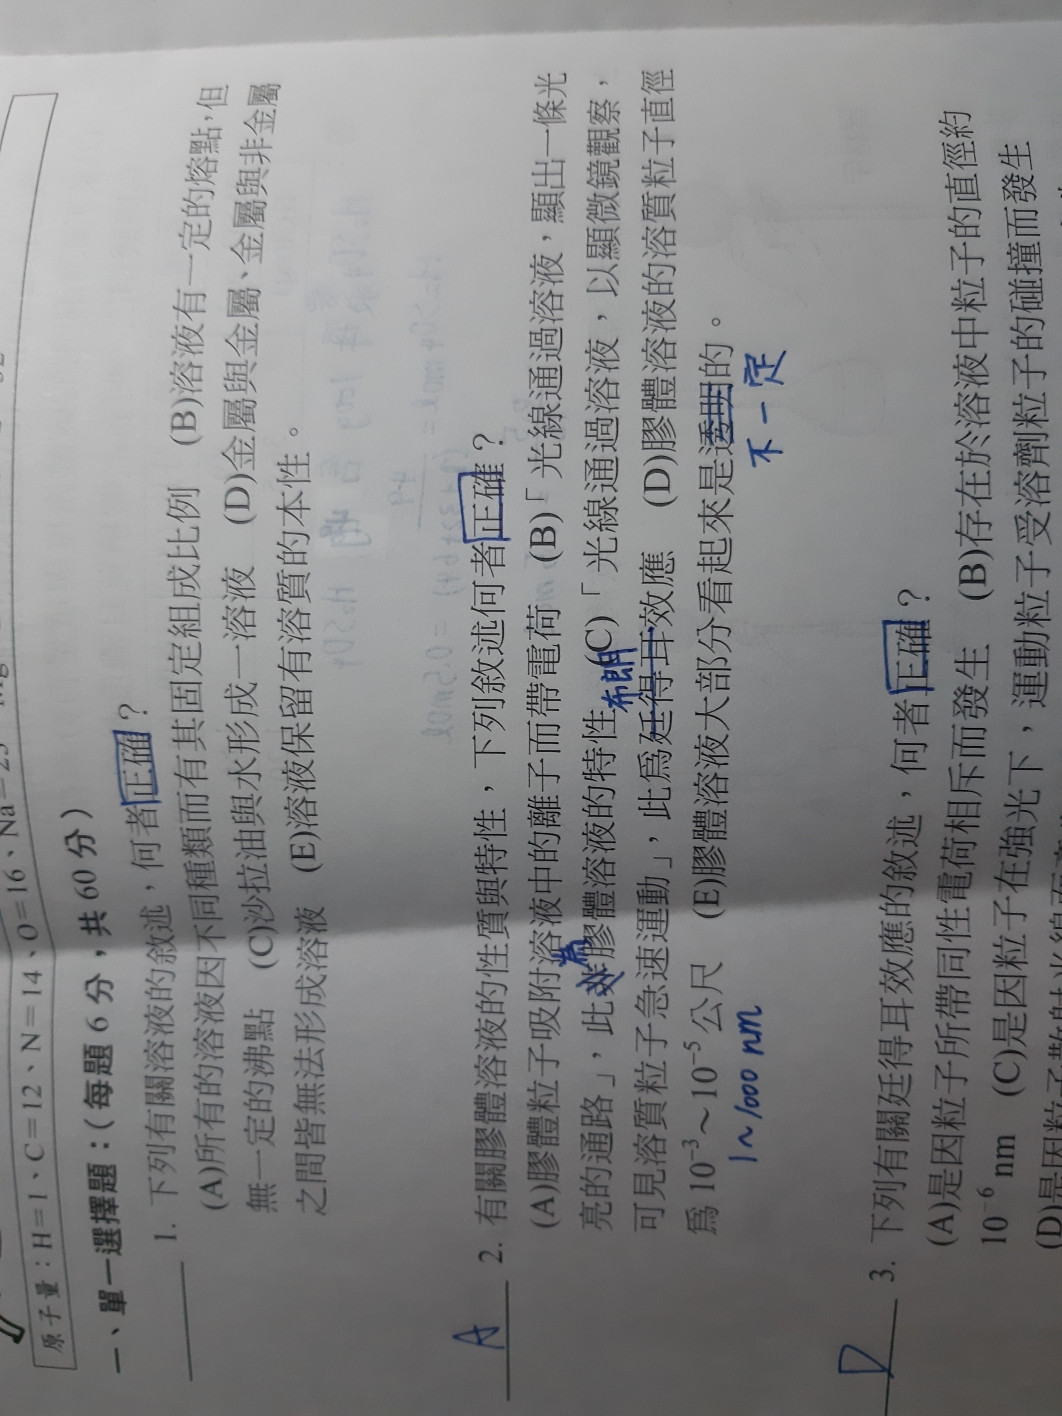 原子量：H＝1、C＝12、N＝14、O＝16、Na＝23
一、單一選擇題：（每題 6 分，共 60 分）
1. 下列有關溶液的敘述，何者正確？
(A)所有的溶液因不同種類而有其固定組成比例 (B)溶液有一定的熔點，但
無一定的沸點 (C)沙拉油與水形成一溶液 (D)金屬與金屬、金屬與非金屬
之間皆無法形成溶液 (E)溶液保留有溶質的本性。
A 2. 有關膠體溶液的性質與特性，下列敘述何者正確？
(A)膠體粒子吸附溶液中的離子而帶電荷 (B)「光線通過溶液，顯出一條光
為
亮的通路」，此非膠體溶液的特性 (C)「光線通過溶液，以顯微鏡觀察，
布朗
可見溶質粒子急速運動」，此為廷得耳效應 (D)膠體溶液的溶質粒子直徑
為 10⁻³～10⁻⁵ 公尺 (E)膠體溶液大部分看起來是透明的。
1~1000 nm 不一定
D 3. 下列有關廷得耳效應的敘述，何者正確？
(A)是因粒子所帶同性電荷相斥而發生 (B)存在於溶液中粒子的直徑約
10⁻⁶ nm (C)是因粒子在強光下，運動粒子受溶劑粒子的碰撞而發生
(D)是因粒子散射光線而